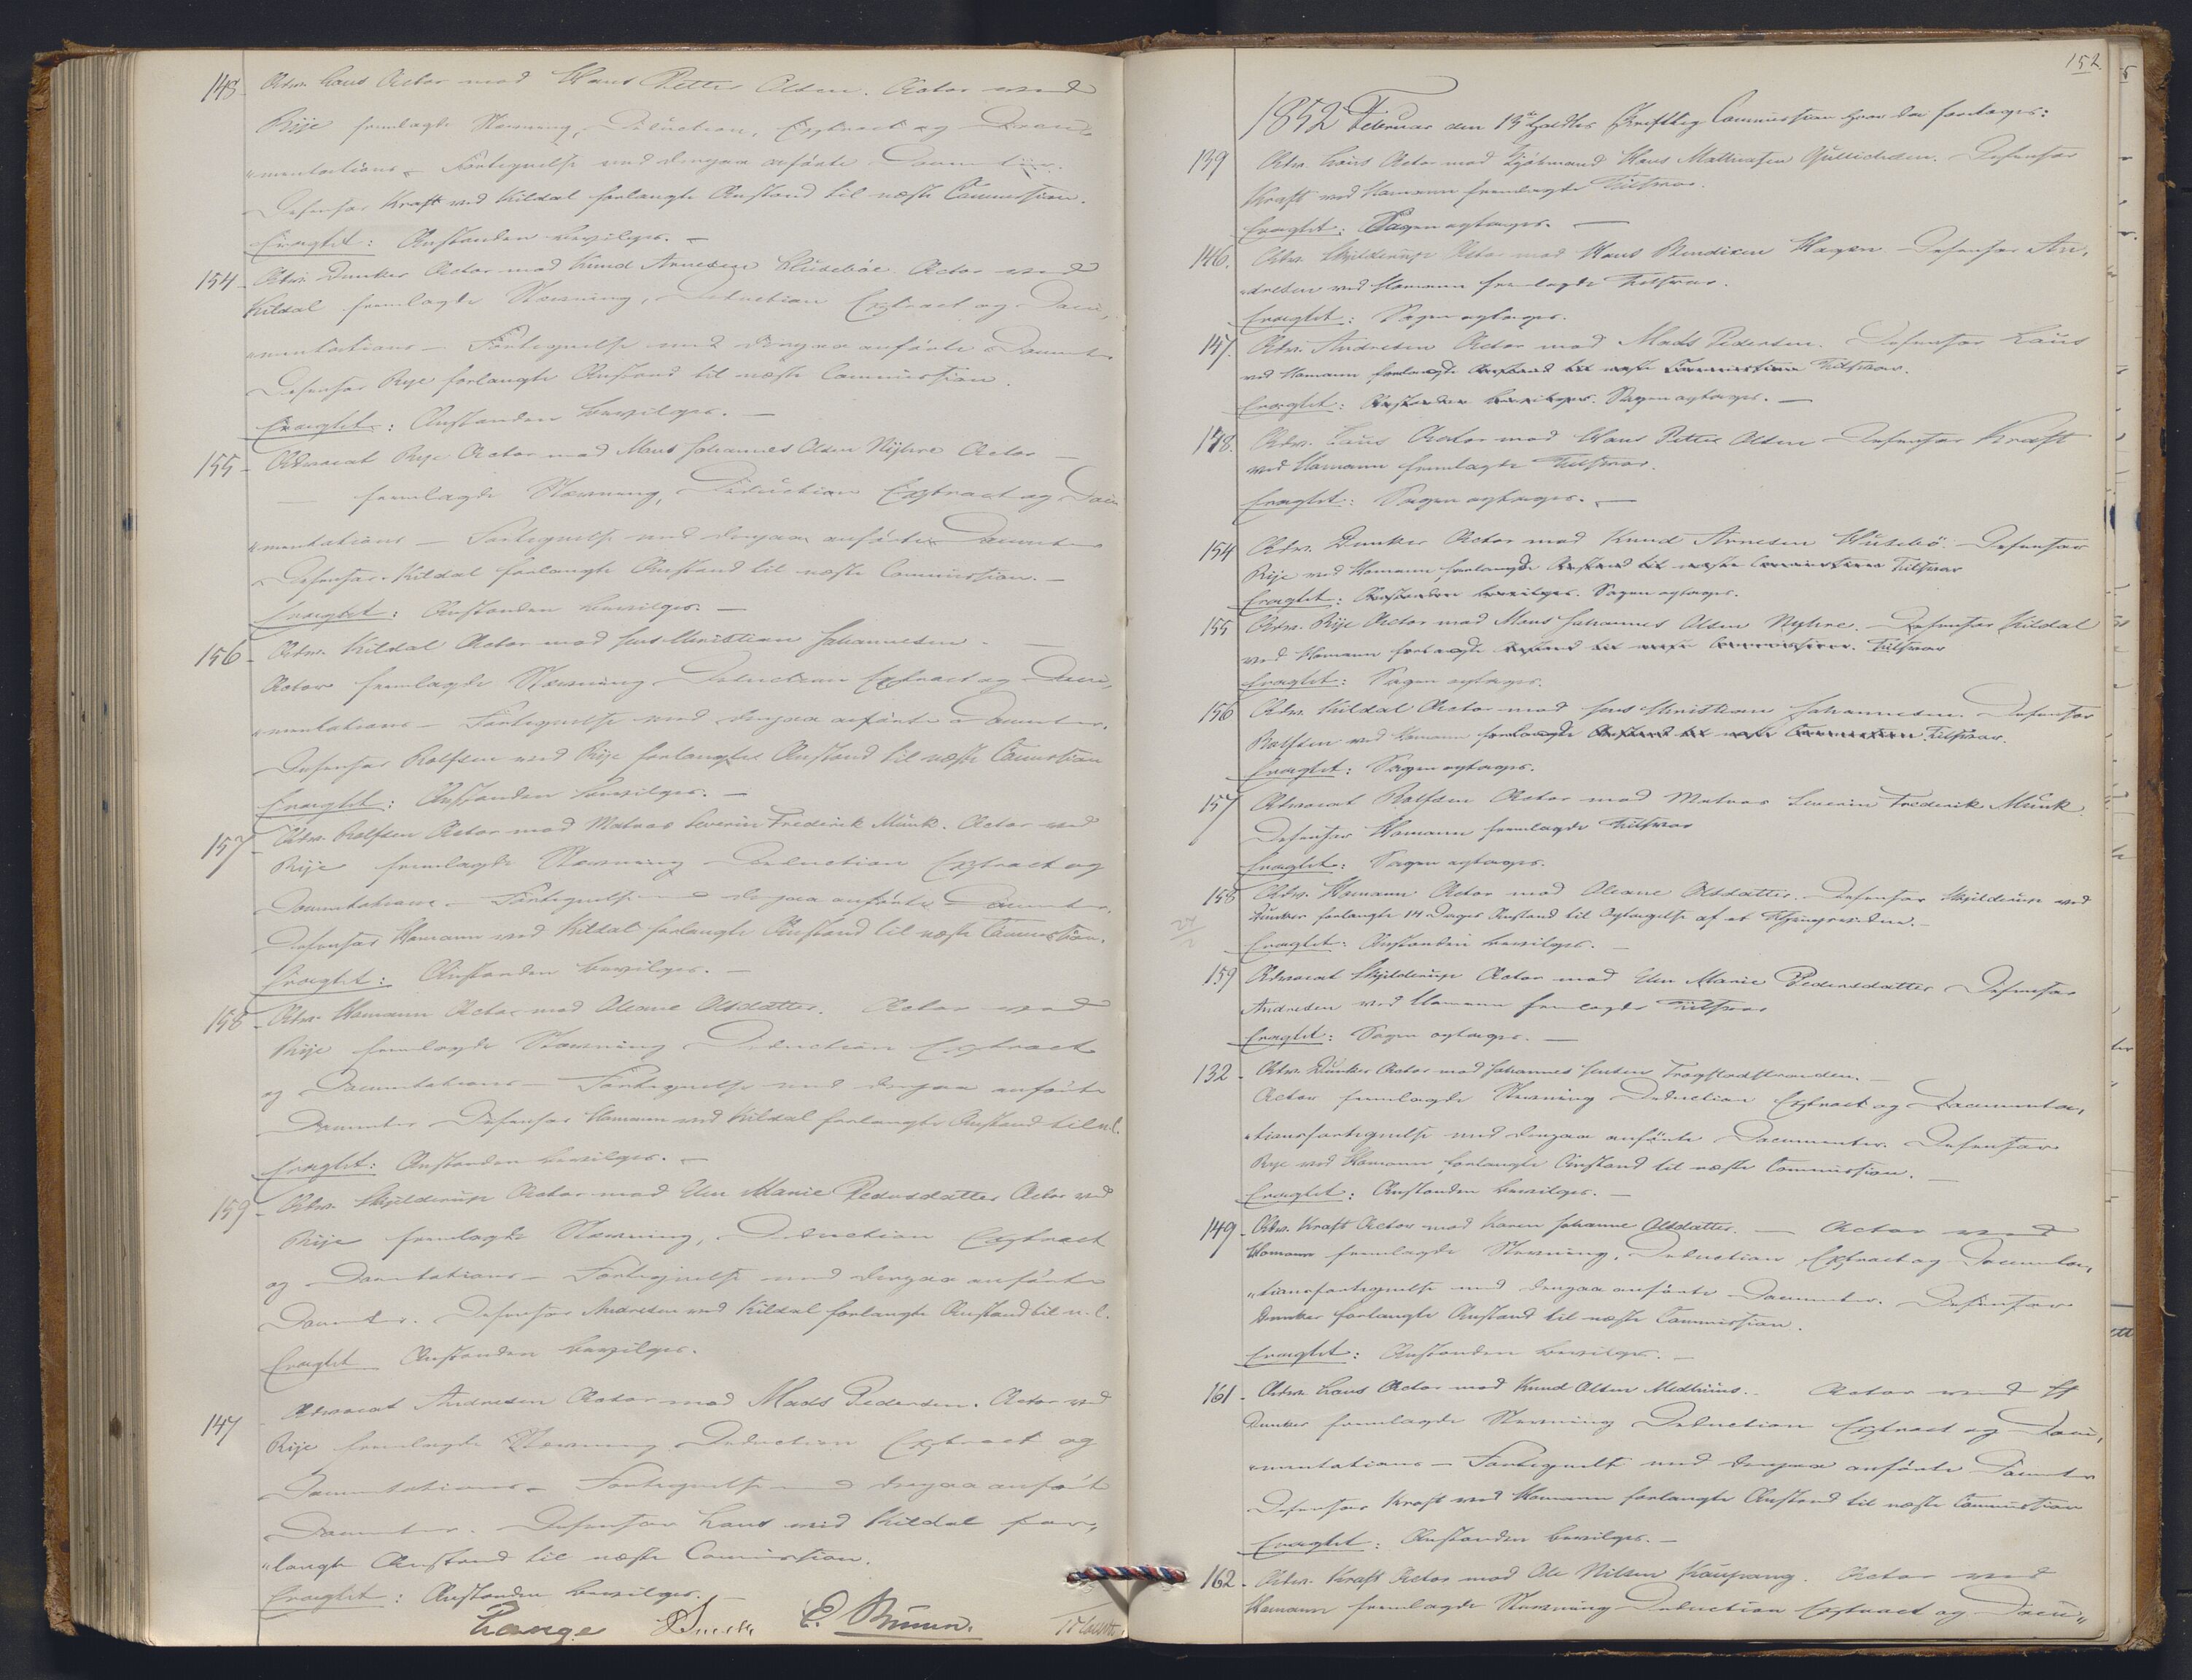 148. Adv. Laus Actor mod Hans Petter Olsen. Actor ved
Rije fremlagde Stævning, Deduction, Extract og Docu-
"mentations- Fortegnelse med derpaa anførte Documenter.
Defensor Kraft ved Kildal forlangte Anstand til næste Commission.
Eragtet: Anstanden bevilges. —
154 - Adv. Dunker Actor mod Knud Arnesen Actor ved
Kildal fremlagde Stævning, Deduction Extract og Docu,
"mentations — Fortegnelse med derpaa anførte Documenter
Defensor Rye forlangte Anstand til næste Commission.
Eragtet: Anstanden bevilges. —
155 - Advocat Rye Actor mod Mons Johannes Olsen Nyhre Actor —
— fremlagde Stævning, Deduction Extract og Docu
"mentations — Fortegnelse med derpaa anførte Documenter
Defensor Kildal forlangte Anstand til næste Commission. —
Eragtet: Anstanden bevilges. —
156 - Adv. Kildal Actor mod Jens Christian Johannesen —
Actor fremlagde Stævning Deduction Extract og Docu,
"mentations — Fortegnelse med derpaa anførte Documenter.
Defensor Rolfsen ved Rije forlangte Anstand til næste Commission
Eragtet: Anstanden bevilges. —
157 - Adv. Rolfsen Actor mod Matros Severin Frederik Münk. Actor ved
Rije fremlagde Stævning Deduction Extract og
Documentations — Fortegnelse med derpaa anførte Documenter,
Defensor Homann ved Kildal forlangte Anstand til næste Commission.
Eragtet: Anstanden bevilges. —
158 - Adv. Homann Actor mod Oleane Olsdatter. Actor ved
Rije fremlagde Stævning Deduction Extract
og Documentations — Fortegnelse med derpaa anførte
Documenter Defensor Homann ved Kildal forlangte Anstand til n.C.
Eragtet: Anstanden bevilges. —
159 - Adv. Skjelderup Actor mod Elen Marie Pedersdatter Actor ved
Rije fremlagde Stævning, Deduction Extract
og Documentations — Fortegnelse med derpaa anførte
Documenter. Defensor Andresen ved Kildal forlangte Anstand til n.C.
Eragtet Anstanden bevilges.
147 - Advocat Andresen Actor mod Mads Pedersen. Actor ved
Rije fremlagde Stævning Deduction Extract og
Documentations — Fortegnelse med derpaa anførte
Documenter. Defensor Laus ved Kildal for,
"langte Anstand til næste Commission.
Eragtet: Anstanden bevilges. —
Lange E. Bruun.
152.
1852 Februar den 13de holdtes skriftlig Commission hvor da foretoges:
139 Adv. Laus Actor mod Hans Mathiasen Defensor
Kraft ved Homann fremlagde Tilsvar.
Eragtet: Sagen optages. —
146. Adv. Skjelderup Actor mod Hans Bendixen Hagen Defensor An,
"dresen ved Homann fremlagde Tilsvar.
Eragtet: Sagen optages.
147. Adv. Andresen Actor mod Mads Pedersen. Defensor Laus
ved Homann forlangte Anstand til næste Commission Tilsvar.
Eragtet: Anstanden bevilges. Sagen optages. —
148. Adv. Laus Actor mod Hans Petter Olsen Defensor Kraft
ved Homann fremlagde Tilsvar.
Eragtet: Sagen optages. —
154 Adv. Dunker Actor mod Knud Arnesen Defensor
Rije ved Homann forlangde Anstand til næste Commission Tilsvar
Eragtet: Anstanden bevilges. Sagen optages.
155 Adv. Rije Actor mod Mons Johannes Olsen Nyhre. Defensor Kildal
ved Homann forlangte Anstand til næste Commission. Tilsvar
Eragtet: Sagen optages.
156 Adv. Kildal Actor mod Jens Christian Johannesen. Defensor
Rolfsen ved Homann forlangde Anstand til næste Commission Tilsvar.
Eragtet: Sagen optages.
157 Advocat Rolfsen Actor mod Matros Severin Frederik Münk.
Defensor Homann fremlagde Tilsvar
Eragtet: Sagen optages.
158 Adv. Homann Actor mod Oleane Olsdatter. Defensor Skjelderup ved
Dunker forlangte 14 Dages Anstand til Optagelse af et Thingsvidne. —
Eragtet: Anstanden bevilges. —
159 Advocat Skjelderup Actor mod Elen Marie Pedersdatter Defensor
Andresen ved Homann fremlagde Tilsvar
Eragtet: Sagen optages. —
132 - Adv. Dunker Actor mod Johannes Jensen Trøgstadstranden. —
Actor fremlagde Stævning Deduction Extract og Documenta,
"tionsfortegnelse med derpaa anførte Documenter. Defensor
Rye ved Homann forlangte Anstand til næste Commission. —
Eragtet: Anstanden bevilges. —
149 - Adv. Kraft Actor mod Karen Johanne Olsdatter. — Actor ved
Homann fremlagde Stævning, Deduction Extract og Documenta,
"tionsfortegnelse med derpaa anførte Documenter. Defensor
Dunker forlangte Anstand til næste Commission.
Eragtet: Anstanden bevilges. —
161 - Adv. Laus Actor mod Knud Olsen Medhuus. Actor ved
Dunker fremlagde Stævning Deduction Extract og Docu,
"mentations — Fortegnelse med derpaa anførte Documenter
Defensor Kraft ved Homann forlangte Anstand til næste Commission
Eragtet: Anstanden bevilges. —
162 - Adv. Kraft Actor mod Ole Nilsen Kaupang. Actor ved
Homann fremlagde Stævning Deduction Extract og Docu„